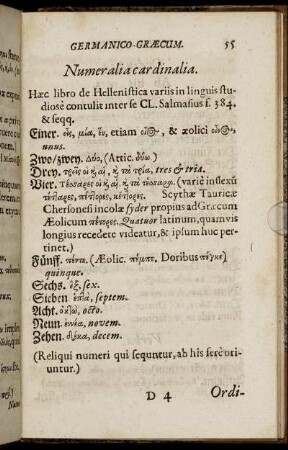 GERMANICO-GRÆCUM. 55
Numeralia cardinalia.
Hæc libro de Hellenistica variis in linguis stu-
diosè contulit inter se CL. Salmasius f. 384.
& seqq.
Einer. εἷς, μία, ἕν, etiam & æolici
unus.
Zwo/zwey. δύο, (Attic. δύω.)
Drey. τρεῖς οἱ ἢ αἱ, ἢ τὰ τρία, tres & tria.
Vier. τέσσαρες οἱ ἢ αἱ, ἢ τὰ τέσσαρα. (variè inflexū
πέτορες. Scythæ Tauricæ
Chersonesi incolæ fyder propius ad Græcum
Æolicum Quatuor latinum, quamvis
longius recedere videatur, & ipsum huc per-
tinet.)
Fünff. πέντε. (Æolic. πέμπε. Doribus
quinque.
Sechs. ἕξ, sex.
Sieben ἑπτὰ, septem.
Acht. ὀκτὼ, octo.
Neun. ἐννέα, novem.
Zehen. δέκα, decem.
(Reliqui numeri qui sequntur, ab his ferè ori-
untur.)
D 4 Ordi-